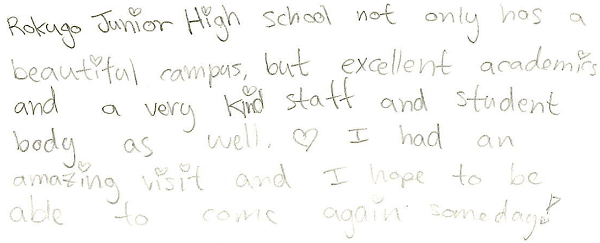 Rokugo Junior High school not only has a
beautiful campus, but excellent academics
and a very kind staff and student
body as well. ♡ I had an
amazing visit and I hope to be
able to come again someday!